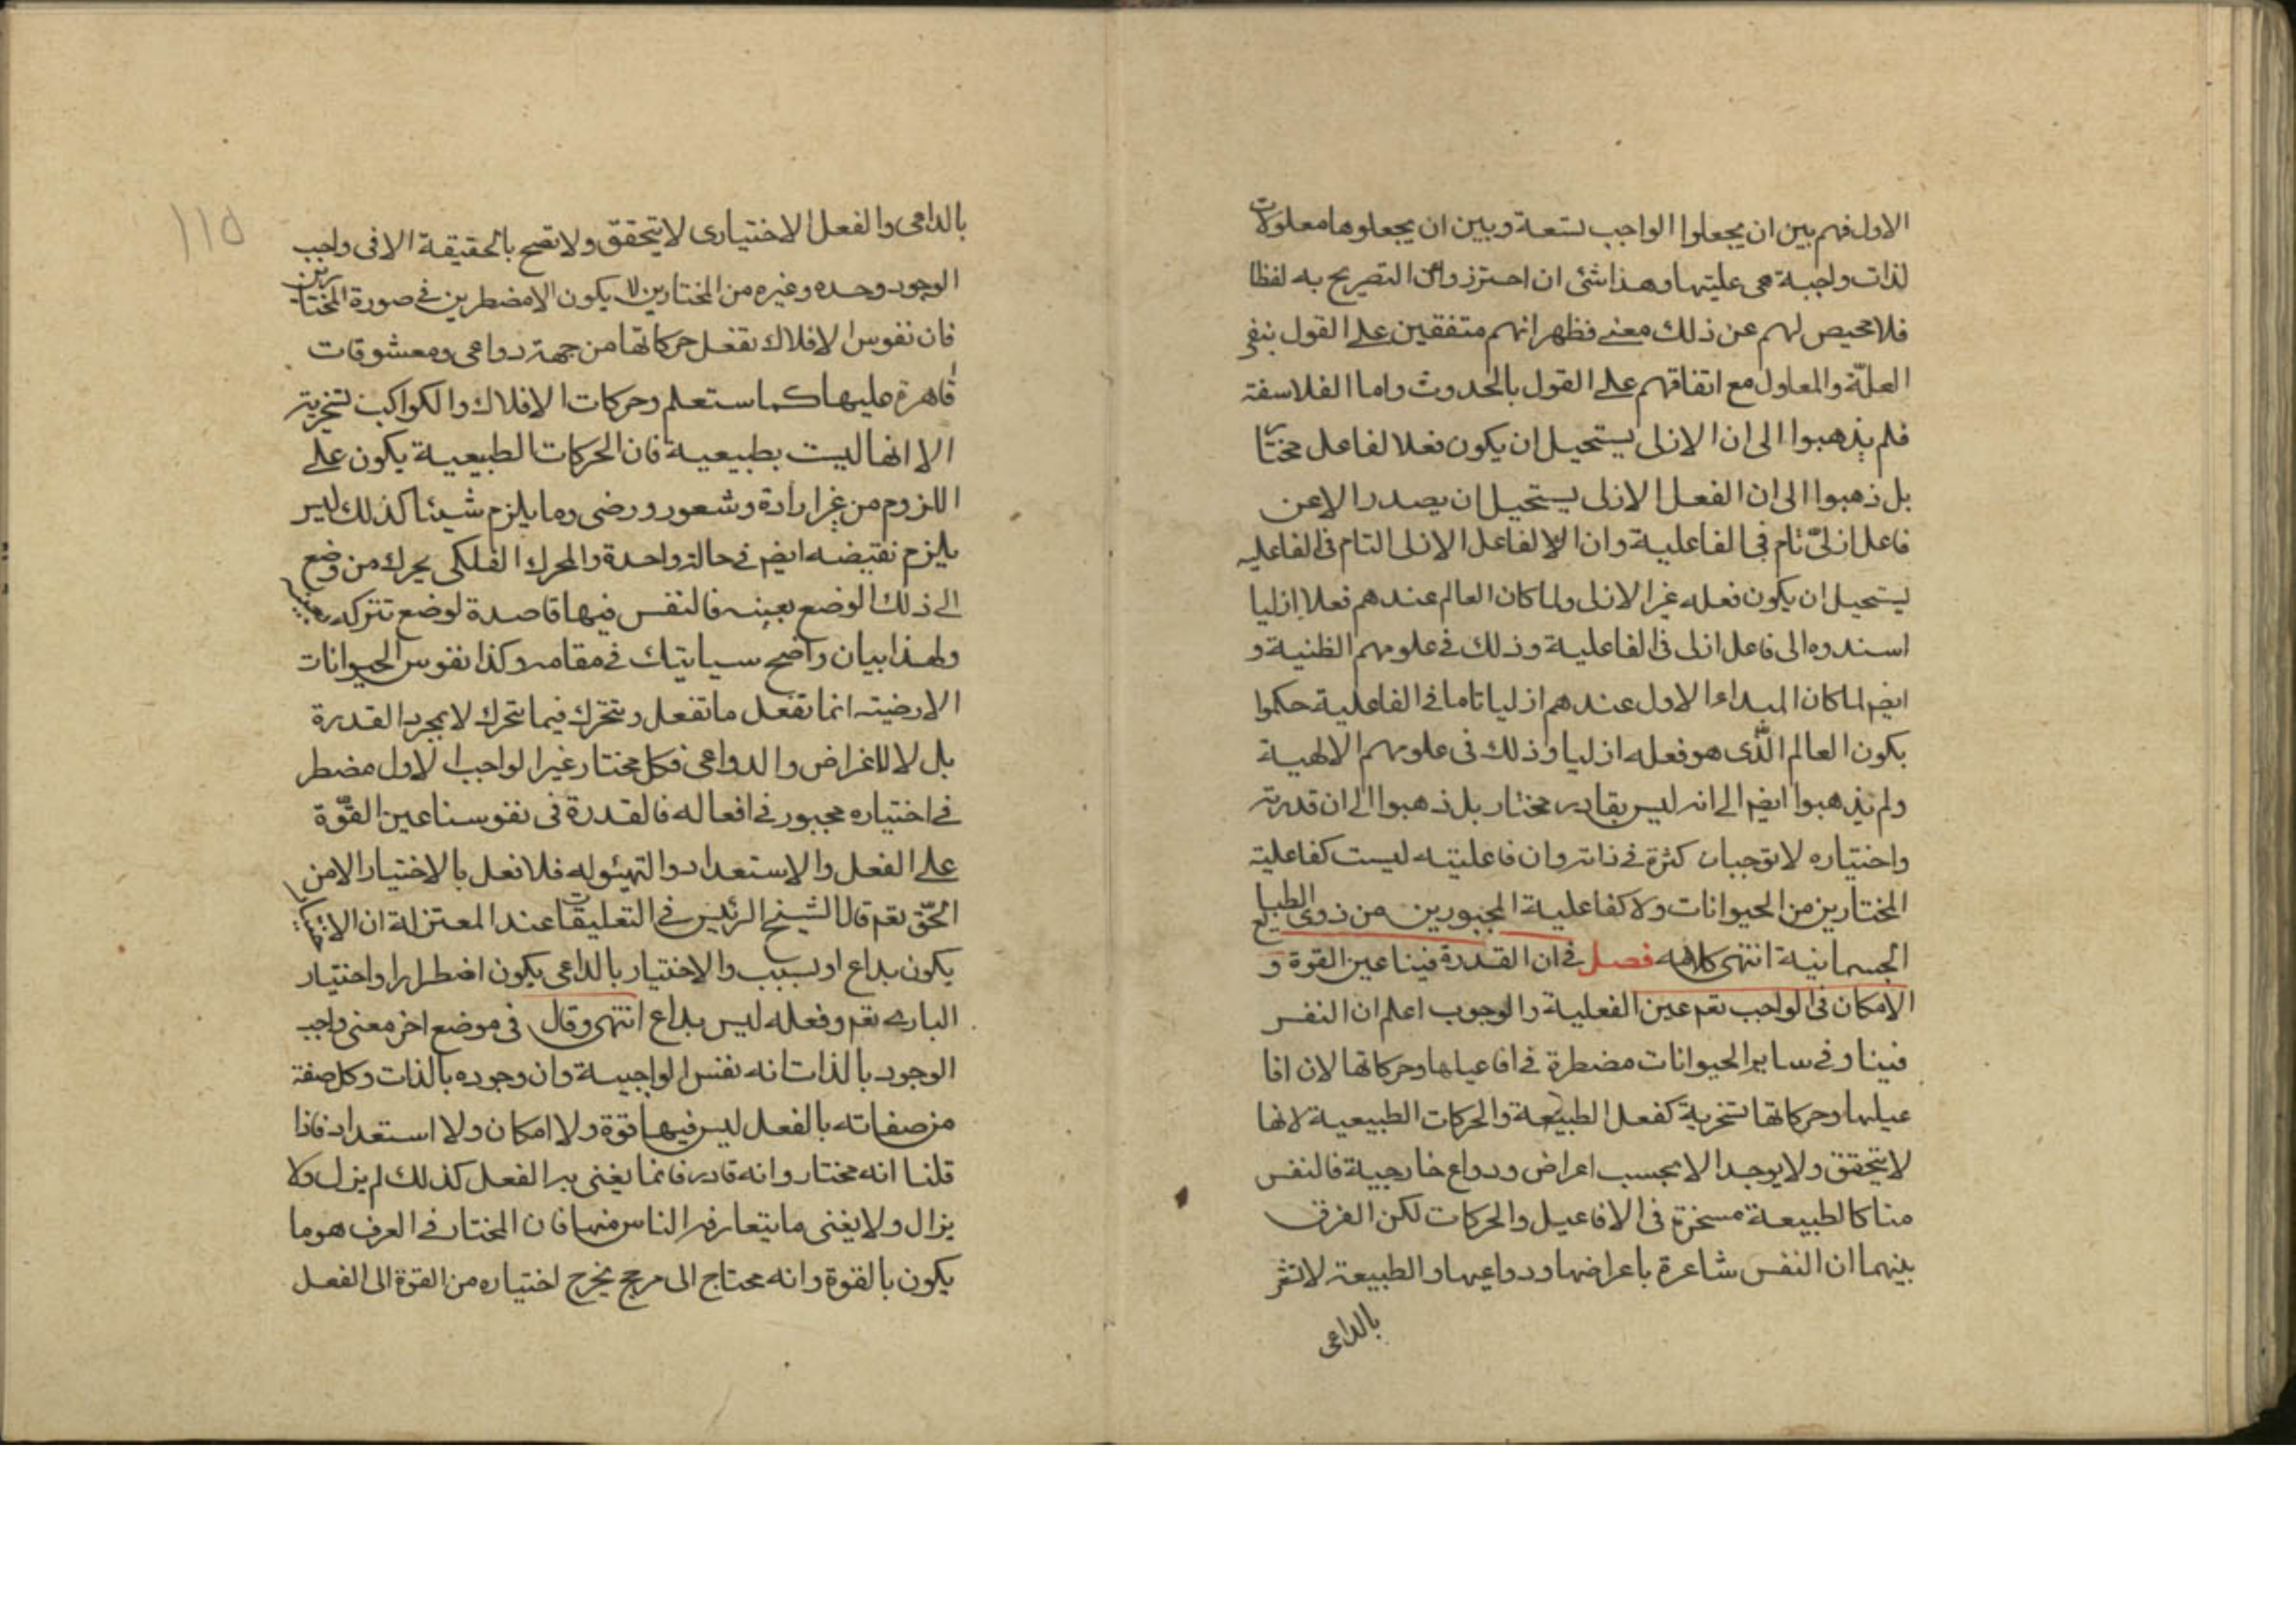 الاول فهم بين ان يجعلوا الواجب تسعة وبين ان يجعلوها معلولات
لذات واجبة هى عليتها وهذا شئ ان احترزوا عن التصريح به لفظا
فلا محيص لهم عن ذلك معنى فظهر انهم متفقين على القول بنفى
العلّة والمعلول مع اتفاقهم على القول بالحدوث واما الفلاسفة
فلم يذهبوا الى ان الازلى يستحيل ان يكون فعلا لفاعل مختار
بل ذهبوا الى ان الفعل الازلى يستحيل ان يصدر الا عن
فاعل ازلىّ تام فى الفاعلية وان الفاعل الازلى التام فى الفاعليه
يستحيل ان يكون فعله غير الازلى ولما كان العالم عندهم فعلا ازليا
اسندوه الى فاعل ازلى فى الفاعلية وذلك فى علومهم الظنية و
ايضم لما كان المبداء الاول عندهم ازليا تاما فى الفاعلية حكموا
بكون العالم الذّى هو فعله ازليا وذلك فى علومهم الالهية
ولم يذهبوا ايضم الى انه ليس بقادر مختار بل ذهبوا الى ان قدرته
واختياره لا توجبان كثرة فى ذاته وان فاعليته ليست كفاعلية
المختارين من الحيوانات ولا كفاعلية المجبورين من ذوى الطبايع
الجسمانية انتهى كلامه فصل فى ان القدرة فينا عين القوة و
الامكان فى الواجب تعم عين الفعلية والوجوب اعلم ان النفس
فينا وفى ساير الحيوانات مضطرة فى افاعيلها وحركاتها لان افا
عيلها وحركاتها تسخرية كفعل الطبيعة والحركات الطبيعية لانها
لا يتحقق ولا يوجد الا بحسب اعراض ودواع خارجية فالنفس
منا كالطبيعة مسخرة فى الافاعيل والحركات لكن الفرق
بينهما ان النفس شاعرة باعراضها ودواعيها والطبيعة لا تشعر
بالداعى
١١٥
بالداعى والفعل الاختيارى لا يتحقق ولا تصح بالحقيقة الا فى واجب
الوجود وحده وغيره من المختارين لا يكون الا مضطرين فى صورة المختارين
فان نفوس الافلاك تفعل حركاتها من جهة دواعى ومعشوقات
قاهرة عليها كما ستعلم وحركات الافلاك والكواكب تسخرية
الا انها ليست بطبيعية فان الحركات الطبيعية يكون على
اللزوم من غير ارادة وشعور ورضى وما يلزم شيئا كذلك ليس
يلزم نقيضه ايضم فى حالة واحدة والمحرك الفلكى يحرك من وضع
الى ذلك الوضع بعينه فالنفس فيها قاصدة لوضع تتركه بعينه
ولهذا بيان واضح سياتيك فى مقامه وكذا نفوس الحيوانات
الارضية انما تفعل ما تفعل وتتحرك فيما تتحرك لا بمجرد القدرة
بل لا للاغراض والدواعى فكل مختار غير الواجب الاول مضطر
فى اختياره مجبور فى افعاله فالقدرة فى نفوسنا عين القوّة
على الفعل والاستعداد والتهيئوله فلا فعل بالاختيار الا من
الحّق تعم قال الشيخ الرئيس فى التعليقات عند المعتزلة ان الاختيار
يكون بداع او بسبب والاختيار بالداعى يكون اضطرارا واختيار
البارى تعم وفعله ليس بداع انتهى وقال فى موضع اخر معنى واجب
الوجود بالذات انه نفس الواجبية وان وجوده بالذات وكل صفة
من صفاته بالفعل ليس فيها قوة ولا امكان ولا استعداد فاذا
قلنا انه مختار وانه قادر فانما يغنى به الفعل كذلك لم يزل ولا
يزال ولا يغنى ما يتعارفه الناس منها فان المختار فى العرف هو ما
يكون بالقوة وانه محتاج الى مرجح يخرج اختياره من القوة الى الفعل